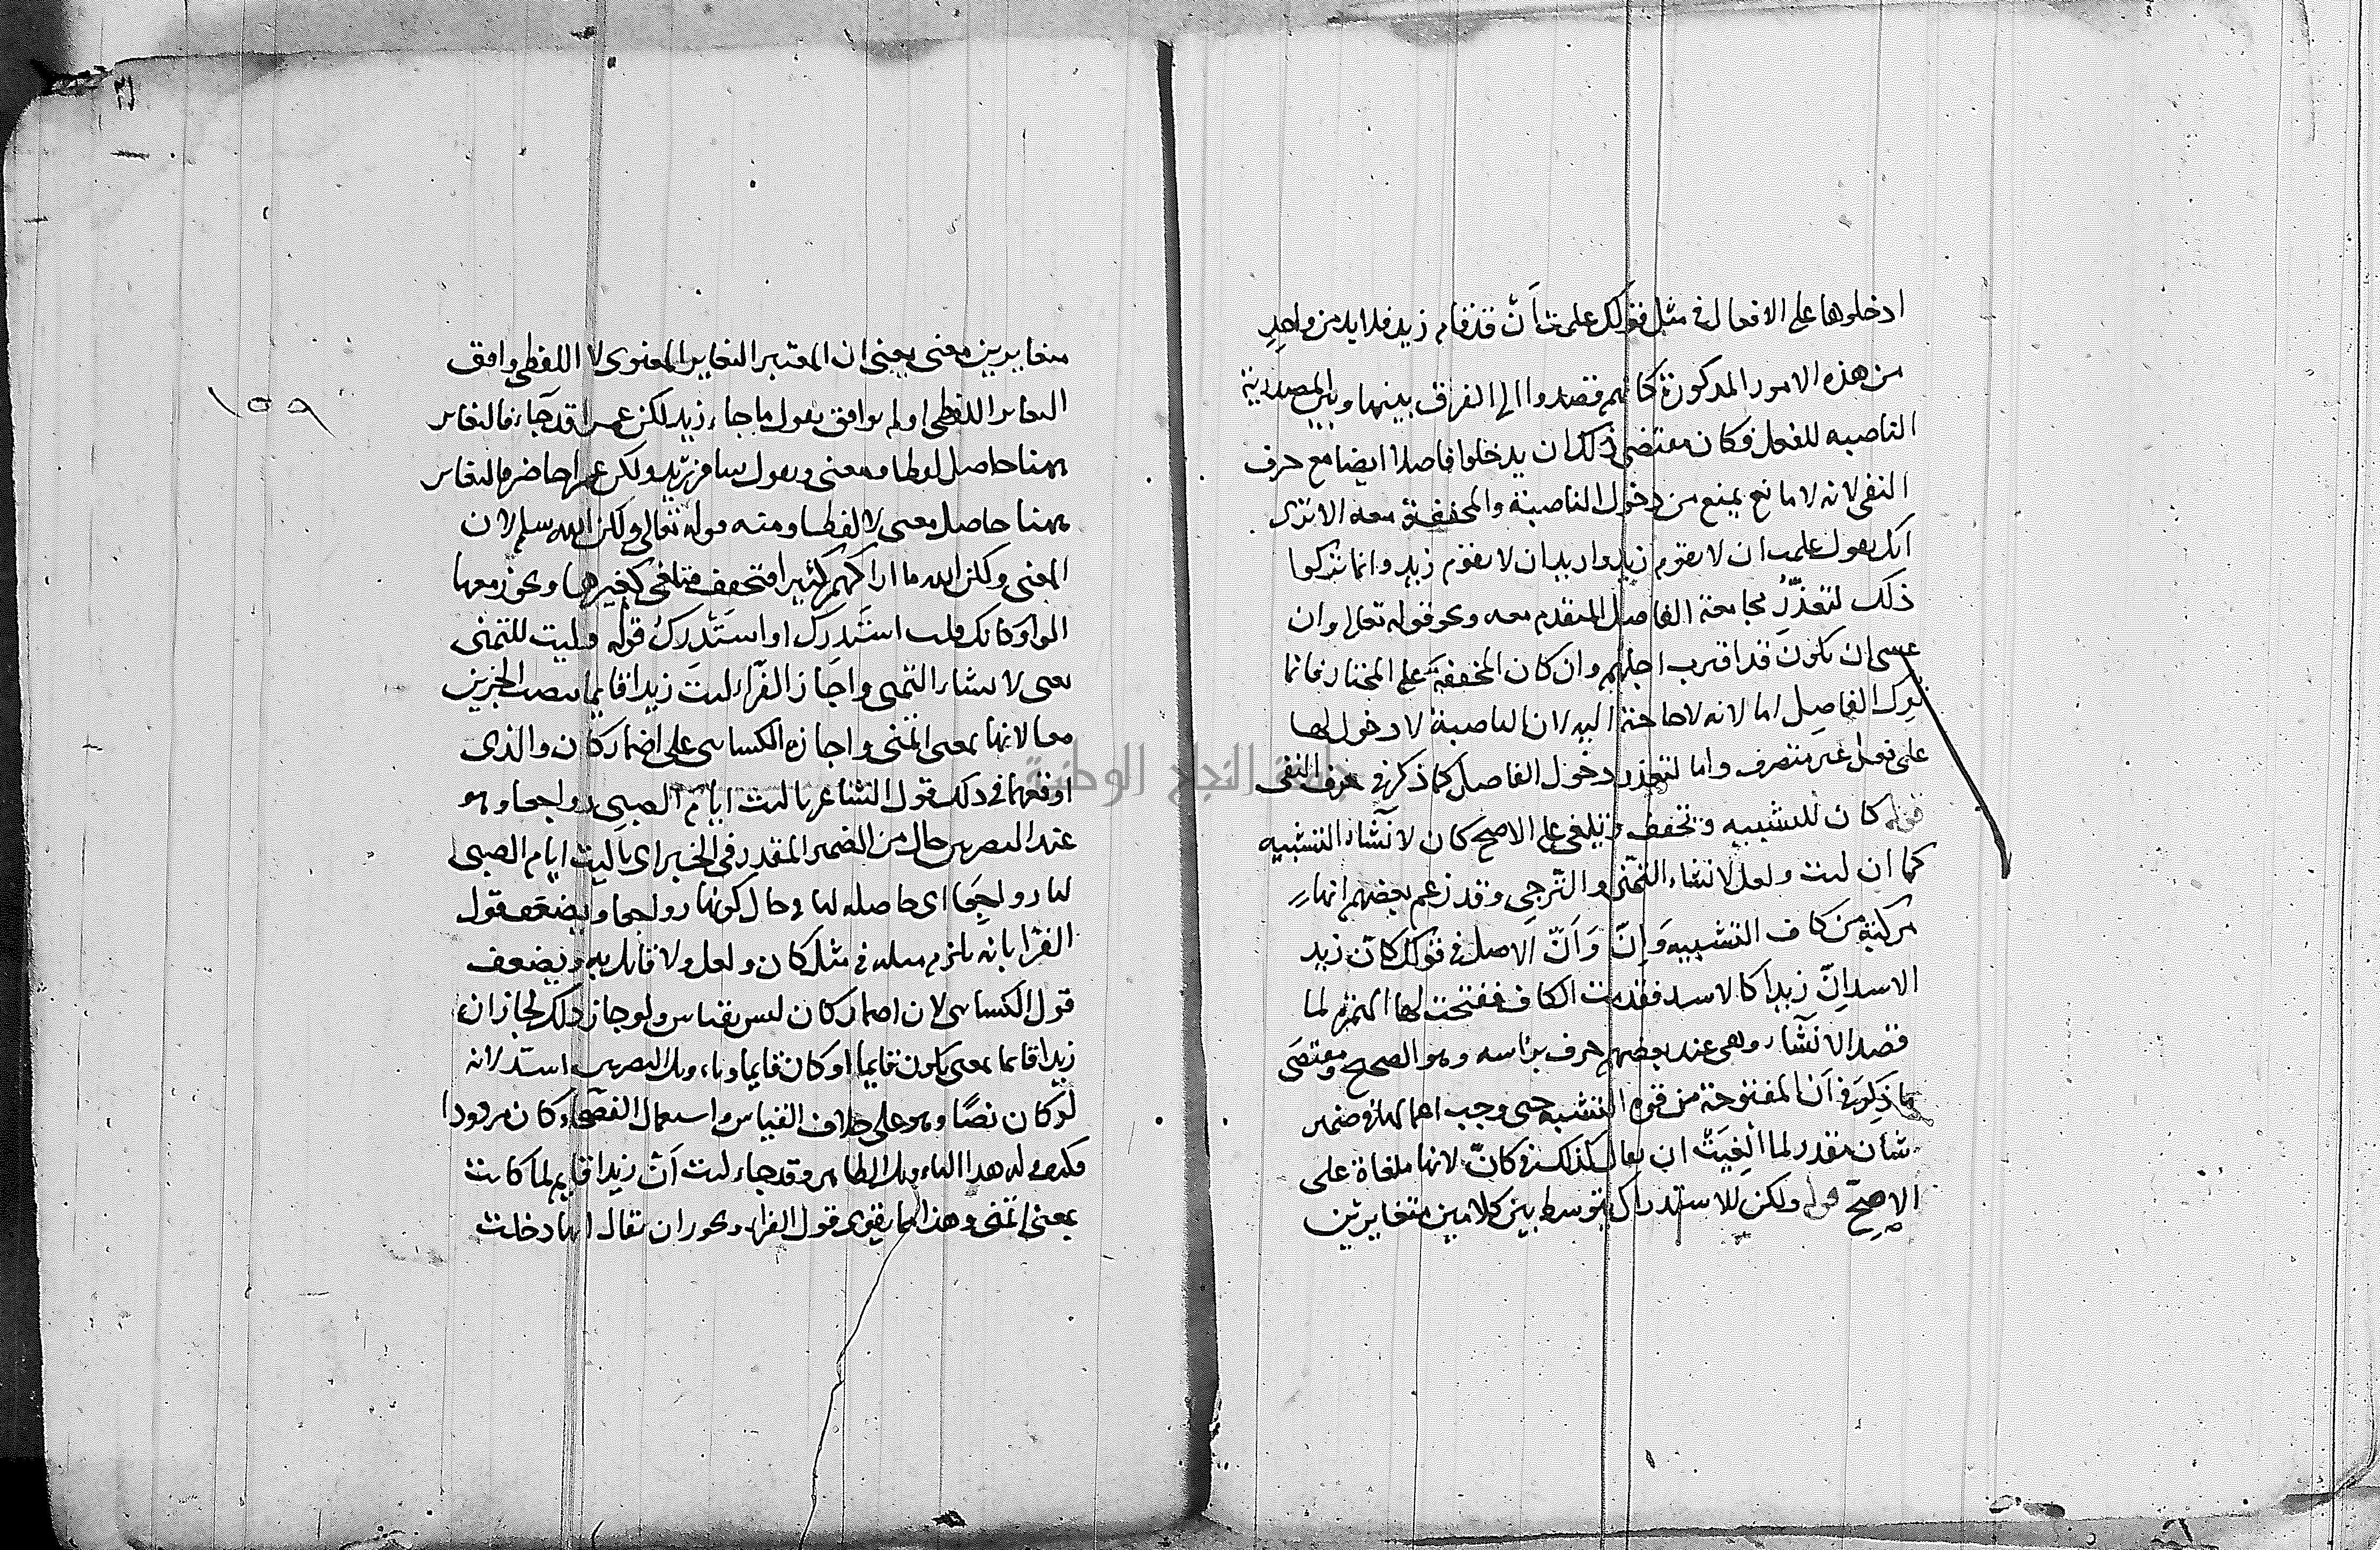 ادخلوها على الافعال في مثل قولك علمت أن قد قام زيد فلا بد من واحدٍ
من هذه الامور المذكورة كانهم قصدوا الى الفرق بينها وبين المصدرية
الناصبه للفعل فكان مقتضى ذلك ان يدخلوا فاصلا ايضا مع حرف
النفى لانه لا مانع يمنع من دخول الناصبة والمخففة معه الا ترى
انك تقول علمت ان لا يقوم زيد واريد ان لا يقوم زيد وانما تركوا
ذلك لتعذّرُ مجامعة الفاصل المتقدم معه ونحو قوله تعالى وان
عسى ان يكونَ قد اقترب اجلهم وان كان المخففة على المختار فانما
تُرِك الفاصِل اما لانه لا حاجة اليه لان الناصبة لا دخول لها
على فعل غير متصرف واما لتعذر دخول الفاصل كما ذكر في حرف النفى
قوله كان للتشبيه وتخفف وتلغى على الاصح كان لانشاء التشبيه
كما ان ليت ولعل لانشاء التمنى والترجى وقد زعم بعضهم انها
مركبة من كاف التشبيه وَإنّ وَاَنّ الاصل في قولك كانّ زيد
الاسد إنّ زيدا كالاسد فقدمت الكاف ففتحت لها الهمزة لما
قصد الانشاء وهى عند بعضهم حرف براسه وهو الصحيح ومقتضَى
ما ذكِرَ في أن المفتوحة من قوة التشبه حتى وجب اعمالها في ضمير
شان مقدر لما اُلغِيَتْ ان يقال كذلك في كانّ لانها ملغاة على
الاصحّ قوله ولكن للاستدراك يتوسط بين كلامين متغايرين
متغايرين معنى يعنى ان المعتبر التغاير المعنوى لا اللفظى وافق
التغاير اللفظى او لم يوافق تقول ما جاء زيد لكن عمرا قد جاء فالتغاير
ههنا حاصل لفظا ومعنى وتقول سافر زيد ولكن عمرا حاضر فالتغاير
ههنا حاصل معنى لا لفظا ومنه قوله تعالى ولكن الله سلم لان
المعنى ولكن الله ما اراكهم كثيرا فتخفف فتلغى كغيرها ويجوز معها
الواو كانك قلت استَدرِك او استَدرِكُ قوله وليت للتمنى
يعنى لانشاء التمنى واجاز الفرّاء ليتَ زيدا قايما بنصب الجزين
معا لانها بمعنى اتمنى واجازه الكسائى على اضمار كان والذى
اوقعهما في ذلك قول الشاعر يا ليت ايام الصبى رواجعا وهو
عند البصريين حال من الضمير المقدر فى الخبر اى يا ليت ايام الصبى
لنا رواجِعَا اى حاصله لنا في حال كونها رواجعا ويضعف قول
الفرا بانه يلزم مثله في مثل كان ولعل ولا قايل به ويضعف
قول الكسائى لان اضمار كان ليس بقياس ولو جاز ذلك لجاز ان
زيدا قايما بمعنى يكون قايما او كان قايما
لو كان نصًا وهو على خلاف القياس واستعمال الفصحاء كان مردودا
وقد جاء ليت أنّ زيدا قايم لما كانت
بمعنى اتمنى وهذا مما يقوى قول الفراء ويجوز ان يقال انها دخلت
١٥٩
جامعة النجاح الوطنية